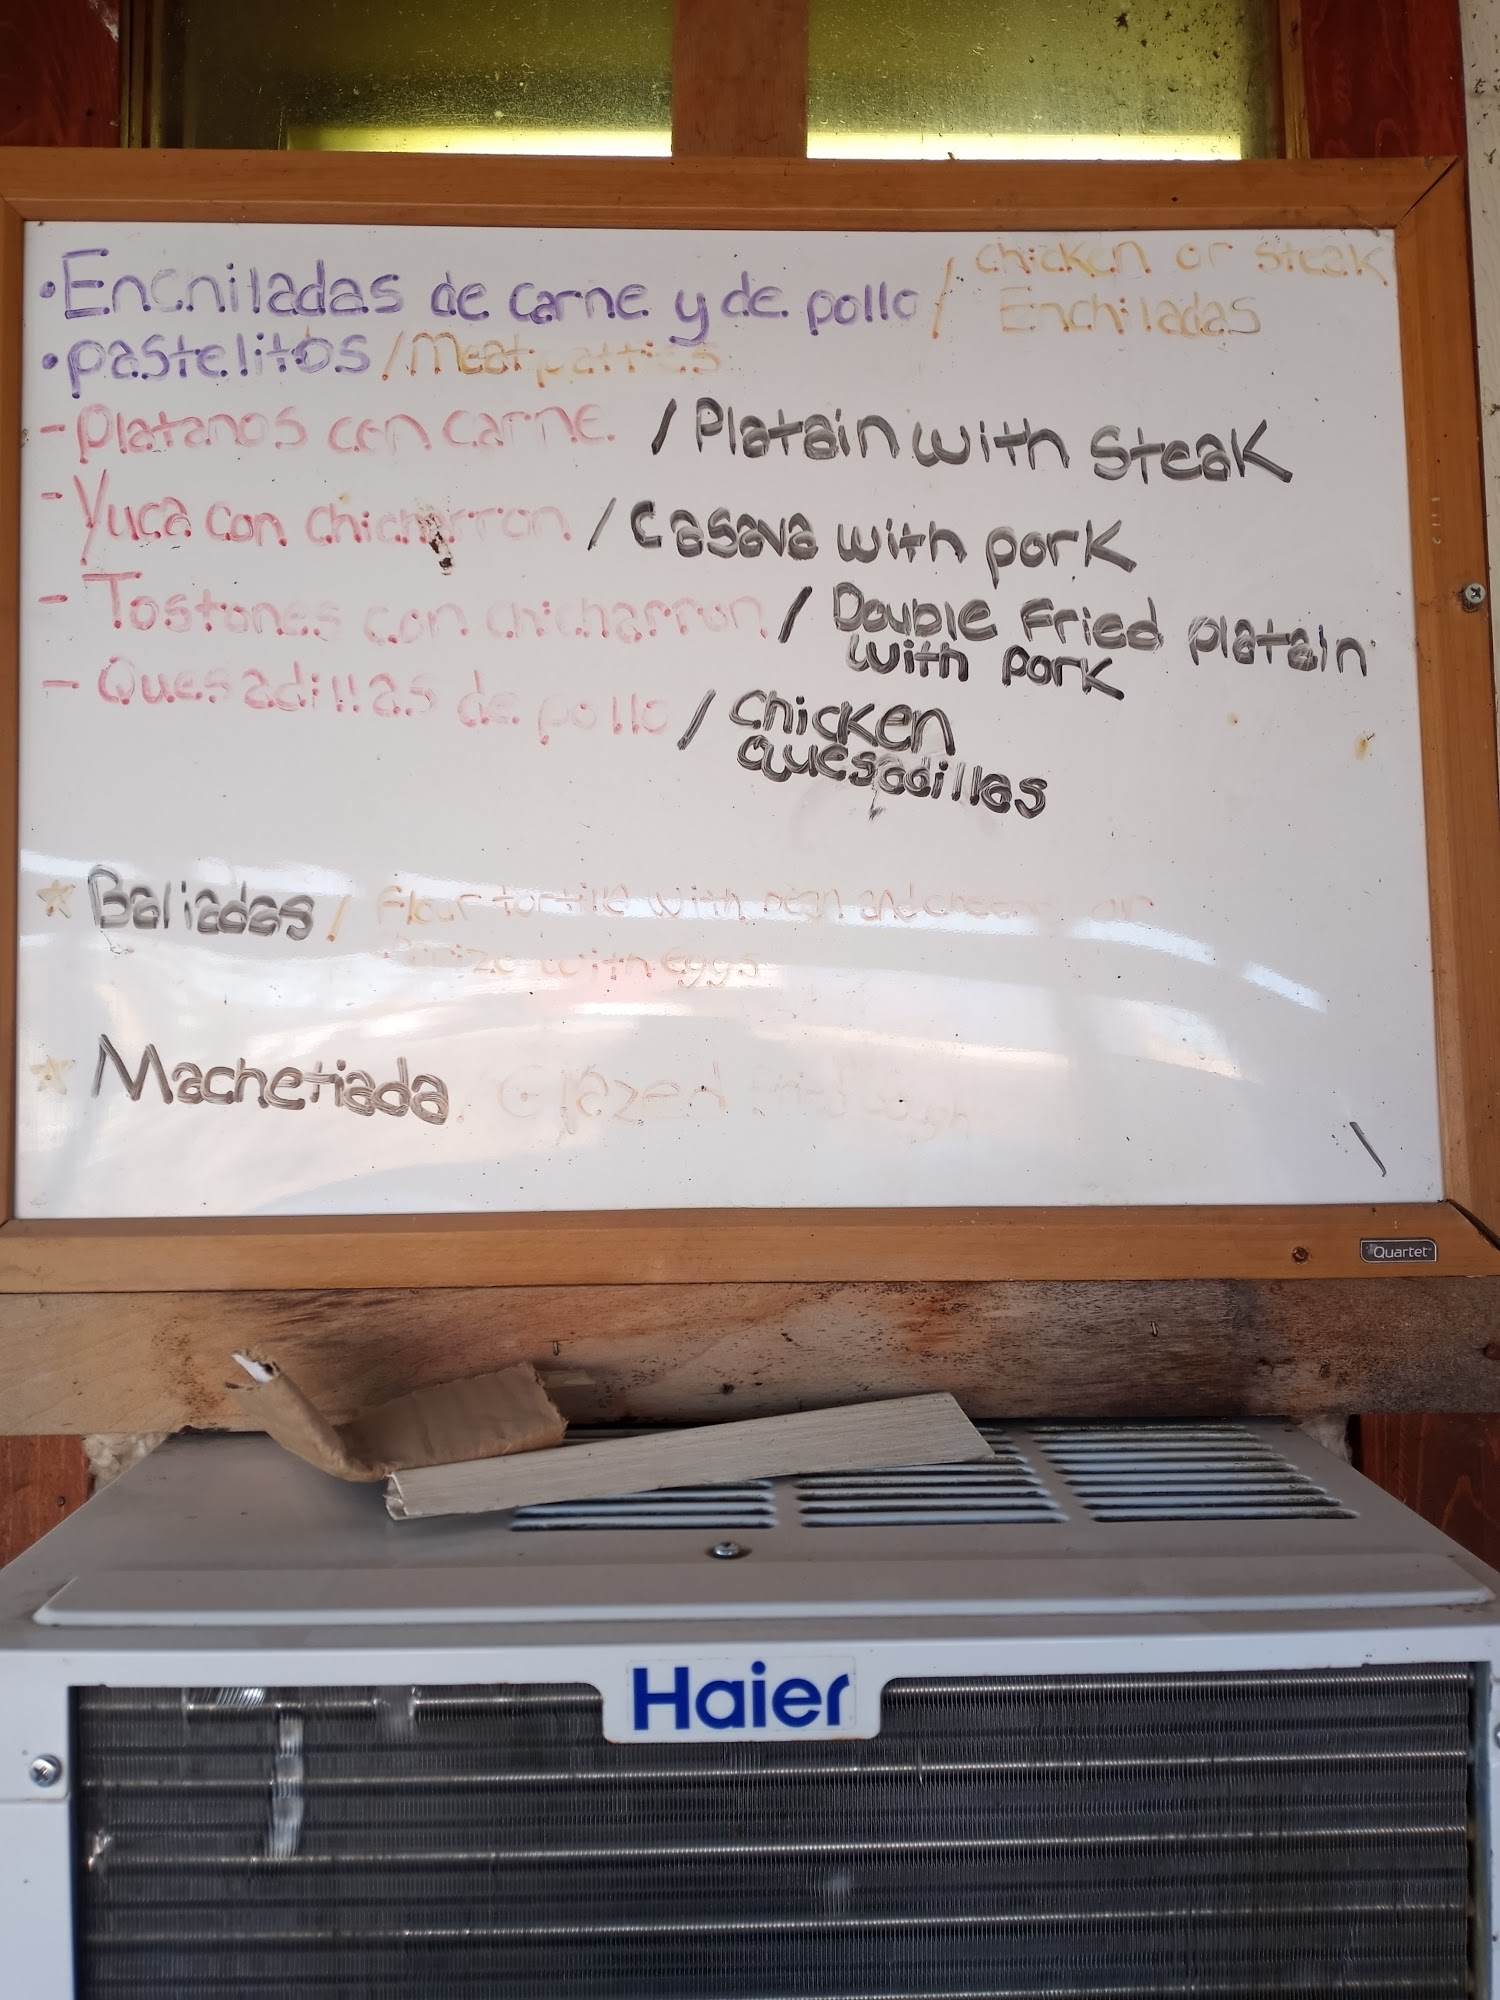 • Enchiladas de carne y de pollo / chicken or steak
Enchiladas
• pastelitos / Meat patties
- platanos con carne. / Platain with steak
- Yuca con chicharron / Casava with pork
- Tostones con chicharron / Double Fried platain
with pork
- Quesadillas de pollo / Chicken
quesadillas
* Baliadas / flour tortilla with bean and cheese or
with eggs
* Machetiada. Glazed
Quartet
Haier